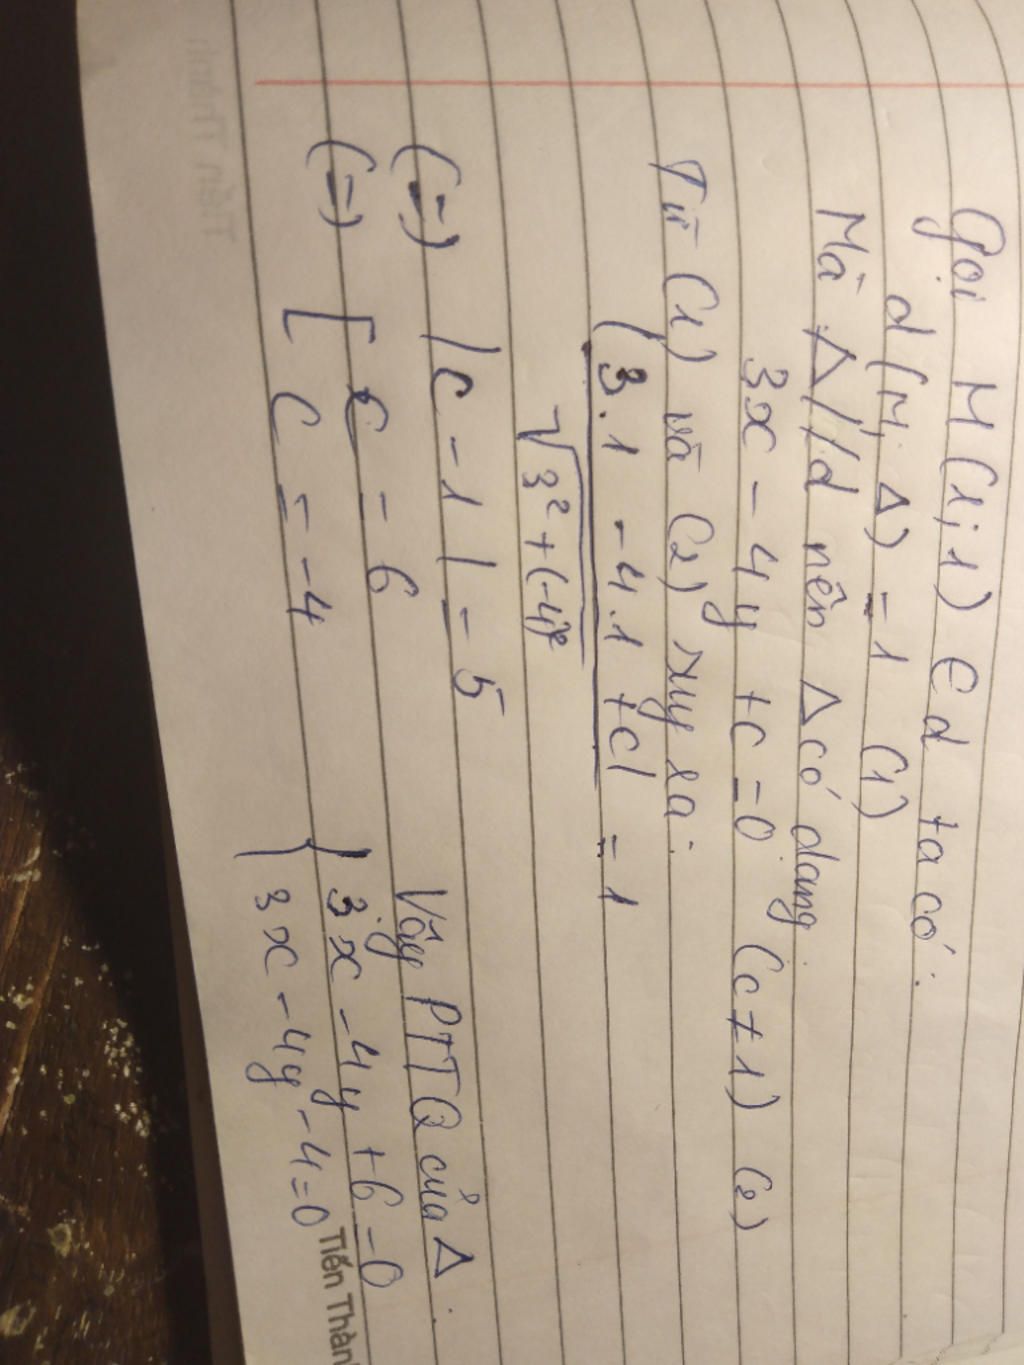 Gọi M(1;1) ∈ d ta có:
d(M, Δ) = 1 (1)
Mà Δ//d nên Δ có dạng
3x - 4y + c = 0 (c ≠ 1) (2)
Từ (1) và (2) suy ra:
|3.1 - 4.1 + c| / √3² + (-4)² = 1
(=) |c - 1| = 5
(=) [ c = 6
c = -4
Vậy PTTQ của Δ:
3x - 4y + 6 = 0
3x - 4y - 4 = 0
Tiến Thành
Tiến Thành